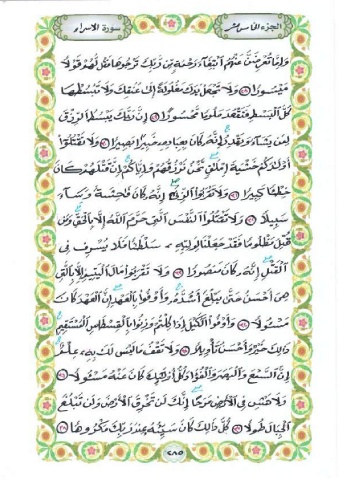 الجزء الخامس عشر
سورة الاسراء
وَإِمَّا تُعْرِضَنَّ عَنْهُمُ ٱبْتِغَآءَ رَحْمَةٍ مِّن رَّبِّكَ تَرْجُوهَا فَقُل لَّهُمْ قَوْلًا
مَّيْسُورًا ٢٨ وَلَا تَجْعَلْ يَدَكَ مَغْلُولَةً إِلَىٰ عُنُقِكَ وَلَا تَبْسُطْهَا
كُلَّ ٱلْبَسْطِ فَتَقْعُدَ مَلُومًا مَّحْسُورًا ٢٩ إِنَّ رَبَّكَ يَبْسُطُ ٱلرِّزْقَ
لِمَن يَشَآءُ وَيَقْدِرُ إِنَّهُۥ كَانَ بِعِبَادِهِۦ خَبِيرًا بَصِيرًا ٣٠ وَلَا تَقْتُلُوٓا۟
أَوْلَـٰدَكُمْ خَشْيَةَ إِمْلَـٰقٍ نَّحْنُ نَرْزُقُهُمْ وَإِيَّاكُمْ إِنَّ قَتْلَهُمْ كَانَ
خِطْـًٔا كَبِيرًا ٣١ وَلَا تَقْرَبُوا۟ ٱلزِّنَىٰٓ إِنَّهُۥ كَانَ فَـٰحِشَةً وَسَآءَ
سَبِيلًا ٣٢ وَلَا تَقْتُلُوا۟ ٱلنَّفْسَ ٱلَّتِى حَرَّمَ ٱللَّهُ إِلَّا بِٱلْحَقِّ وَمَن
قُتِلَ مَظْلُومًا فَقَدْ جَعَلْنَا لِوَلِيِّهِۦ سُلْطَـٰنًا فَلَا يُسْرِف فِّى
ٱلْقَتْلِ إِنَّهُۥ كَانَ مَنصُورًا ٣٣ وَلَا تَقْرَبُوا۟ مَالَ ٱلْيَتِيمِ إِلَّا بِٱلَّتِى
هِىَ أَحْسَنُ حَتَّىٰ يَبْلُغَ أَشُدَّهُۥ وَأَوْفُوا۟ بِٱلْعَهْدِ إِنَّ ٱلْعَهْدَ كَانَ
مَسْـُٔولًا ٣٤ وَأَوْفُوا۟ ٱلْكَيْلَ إِذَا كِلْتُمْ وَزِنُوا۟ بِٱلْقِسْطَاسِ ٱلْمُسْتَقِيمِ
ذَٰلِكَ خَيْرٌ وَأَحْسَنُ تَأْوِيلًا ٣٥ وَلَا تَقْفُ مَا لَيْسَ لَكَ بِهِۦ عِلْمٌ
إِنَّ ٱلسَّمْعَ وَٱلْبَصَرَ وَٱلْفُؤَادَ كُلُّ أُو۟لَـٰٓئِكَ كَانَ عَنْهُ مَسْـُٔولًا ٣٦
وَلَا تَمْشِ فِى ٱلْأَرْضِ مَرَحًا إِنَّكَ لَن تَخْرِقَ ٱلْأَرْضَ وَلَن تَبْلُغَ
ٱلْجِبَالَ طُولًا ٣٧ كُلُّ ذَٰلِكَ كَانَ سَيِّئُهُۥ عِندَ رَبِّكَ مَكْرُوهًا ٣٨
٢٨٥